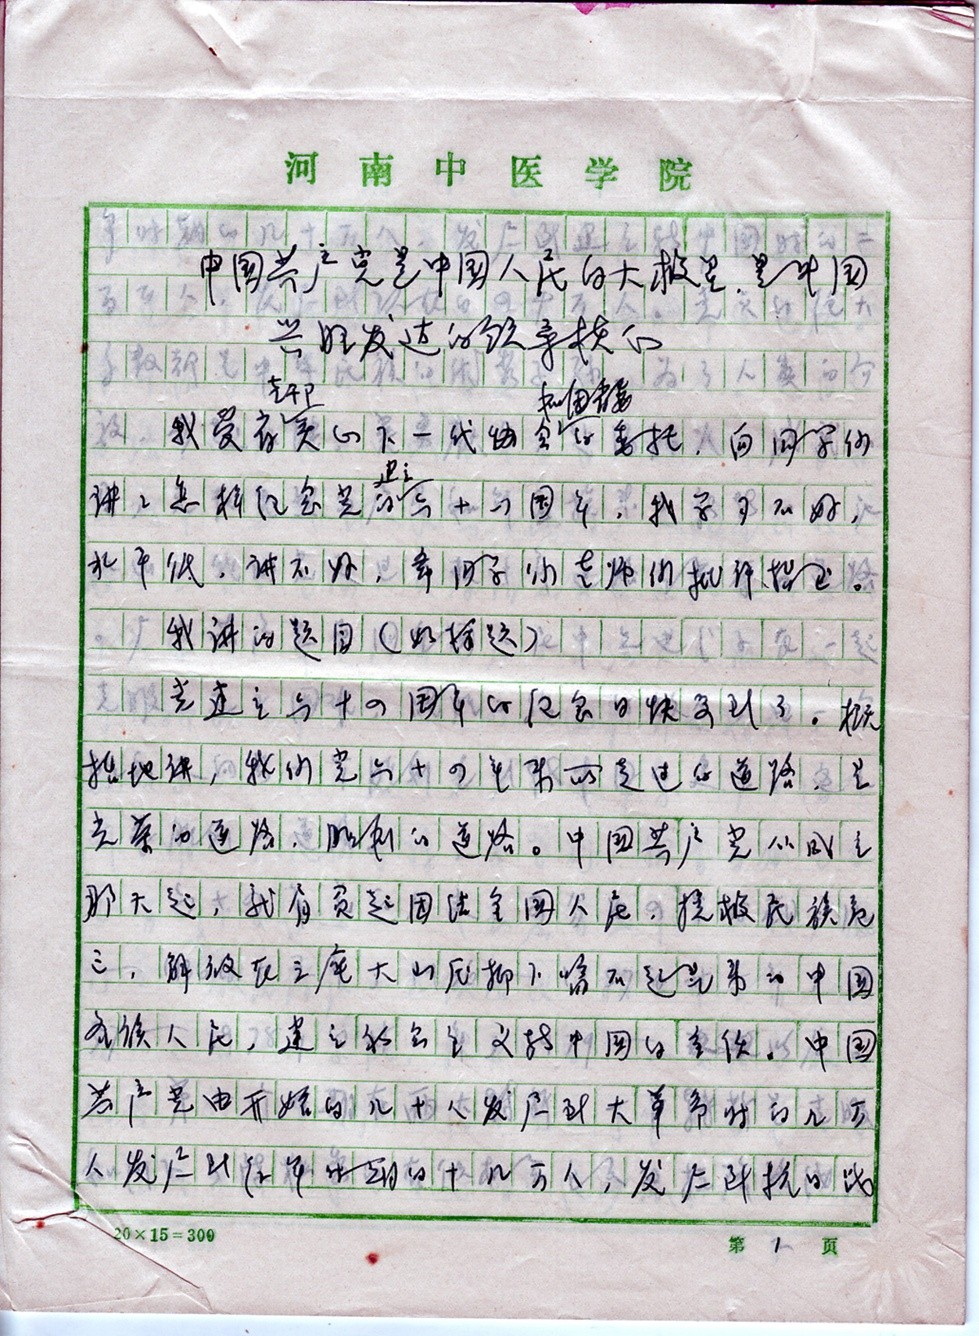 河南中医学院
中国共产党是中国人民的大救星、是中国
兴旺发达的领导核心
老干卫 和团省委
我受育关心下一代协会的委托,向同学们
讲讲怎样纪念党的建立六十六周年,我学习不好,
水平低,讲不好,希同学们老师们批评指正。
我讲的题目(如标题)
党建立六十四周年的纪念日快要到了。概
括地讲,我们党六十四年来所走过的道路,是
光荣的道路,胜利的道路。中国共产党从成立
那天起,就肩负起团结全国人民,挽救民族危
亡,解放在三座大山压抑下喘不起气来的中国
各族人民,建立社会主义新中国的重任。中国
共产党由开始的几十人发展到大革命时的几万
人发展到红军水期的十几万人,发展到抗日战
20×15=300
第 1 页